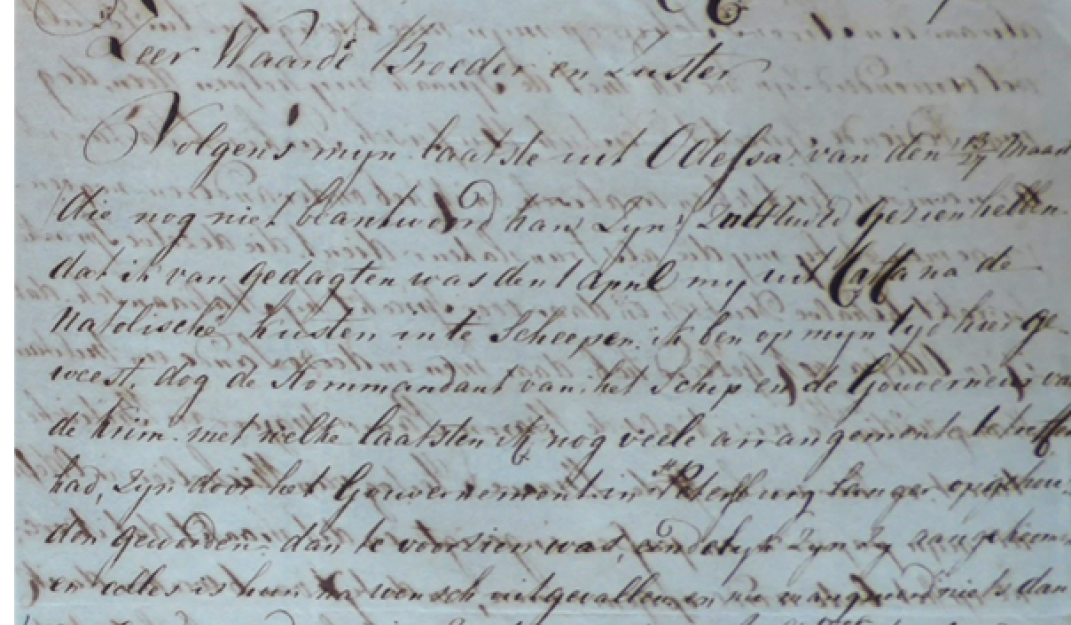 Zeer Waarde Broeder en Zuster
Volgens mijn laatste uit Odessa van den 15/27 Maart
die nog niet beantwoord kan zyn, zult UwE gezien hebben
dat ik van gedagten was den 1 april my uit Caffa na de
Natolische kusten in te Scheepen. ik ben op myn tyd hier ge
weest, dog de Kommandant van het Schip en de Gouverneur van
de Krim met welke laatsten ik nog veele arrangemente te treffen
had, zyn door het Gouvernement in St Petersburg langer opgehou=
den geworden dan te voorzien was, eindelyk zyn zy aangekoom
en alles is hun na wensch uitgevallen en nu mangueerd niets dan